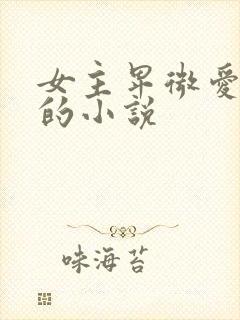 女主卑微愛
的小說
味海苔